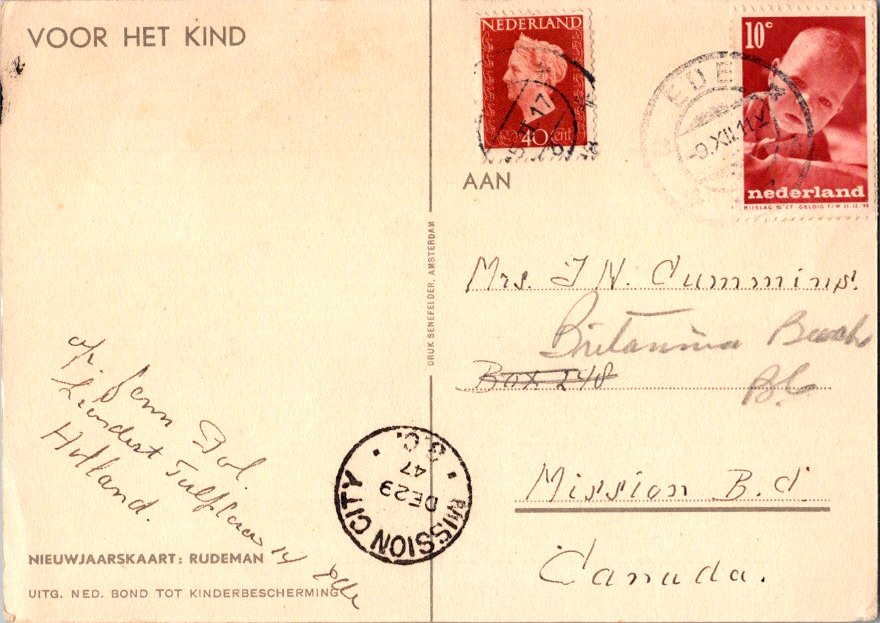 VOOR HET KIND
NEDERLAND
40 cnt
10c
nederland
BIJSLAG 5 CT GELDIG T/M 31-12-'48
EDE
XII.11
17
AAN
DRUK SENEFELDER, AMSTERDAM
Mrs. J N. Cummins.
Britannia Beach
Box 248
BC
Mission B.C.
Canada.
MISSION CITY
B.C.
DE 29
47
Bol.
Holland.
14
Ede
NIEUWJAARSKAART: RUDEMAN
UITG. NED. BOND TOT KINDERBESCHERMING